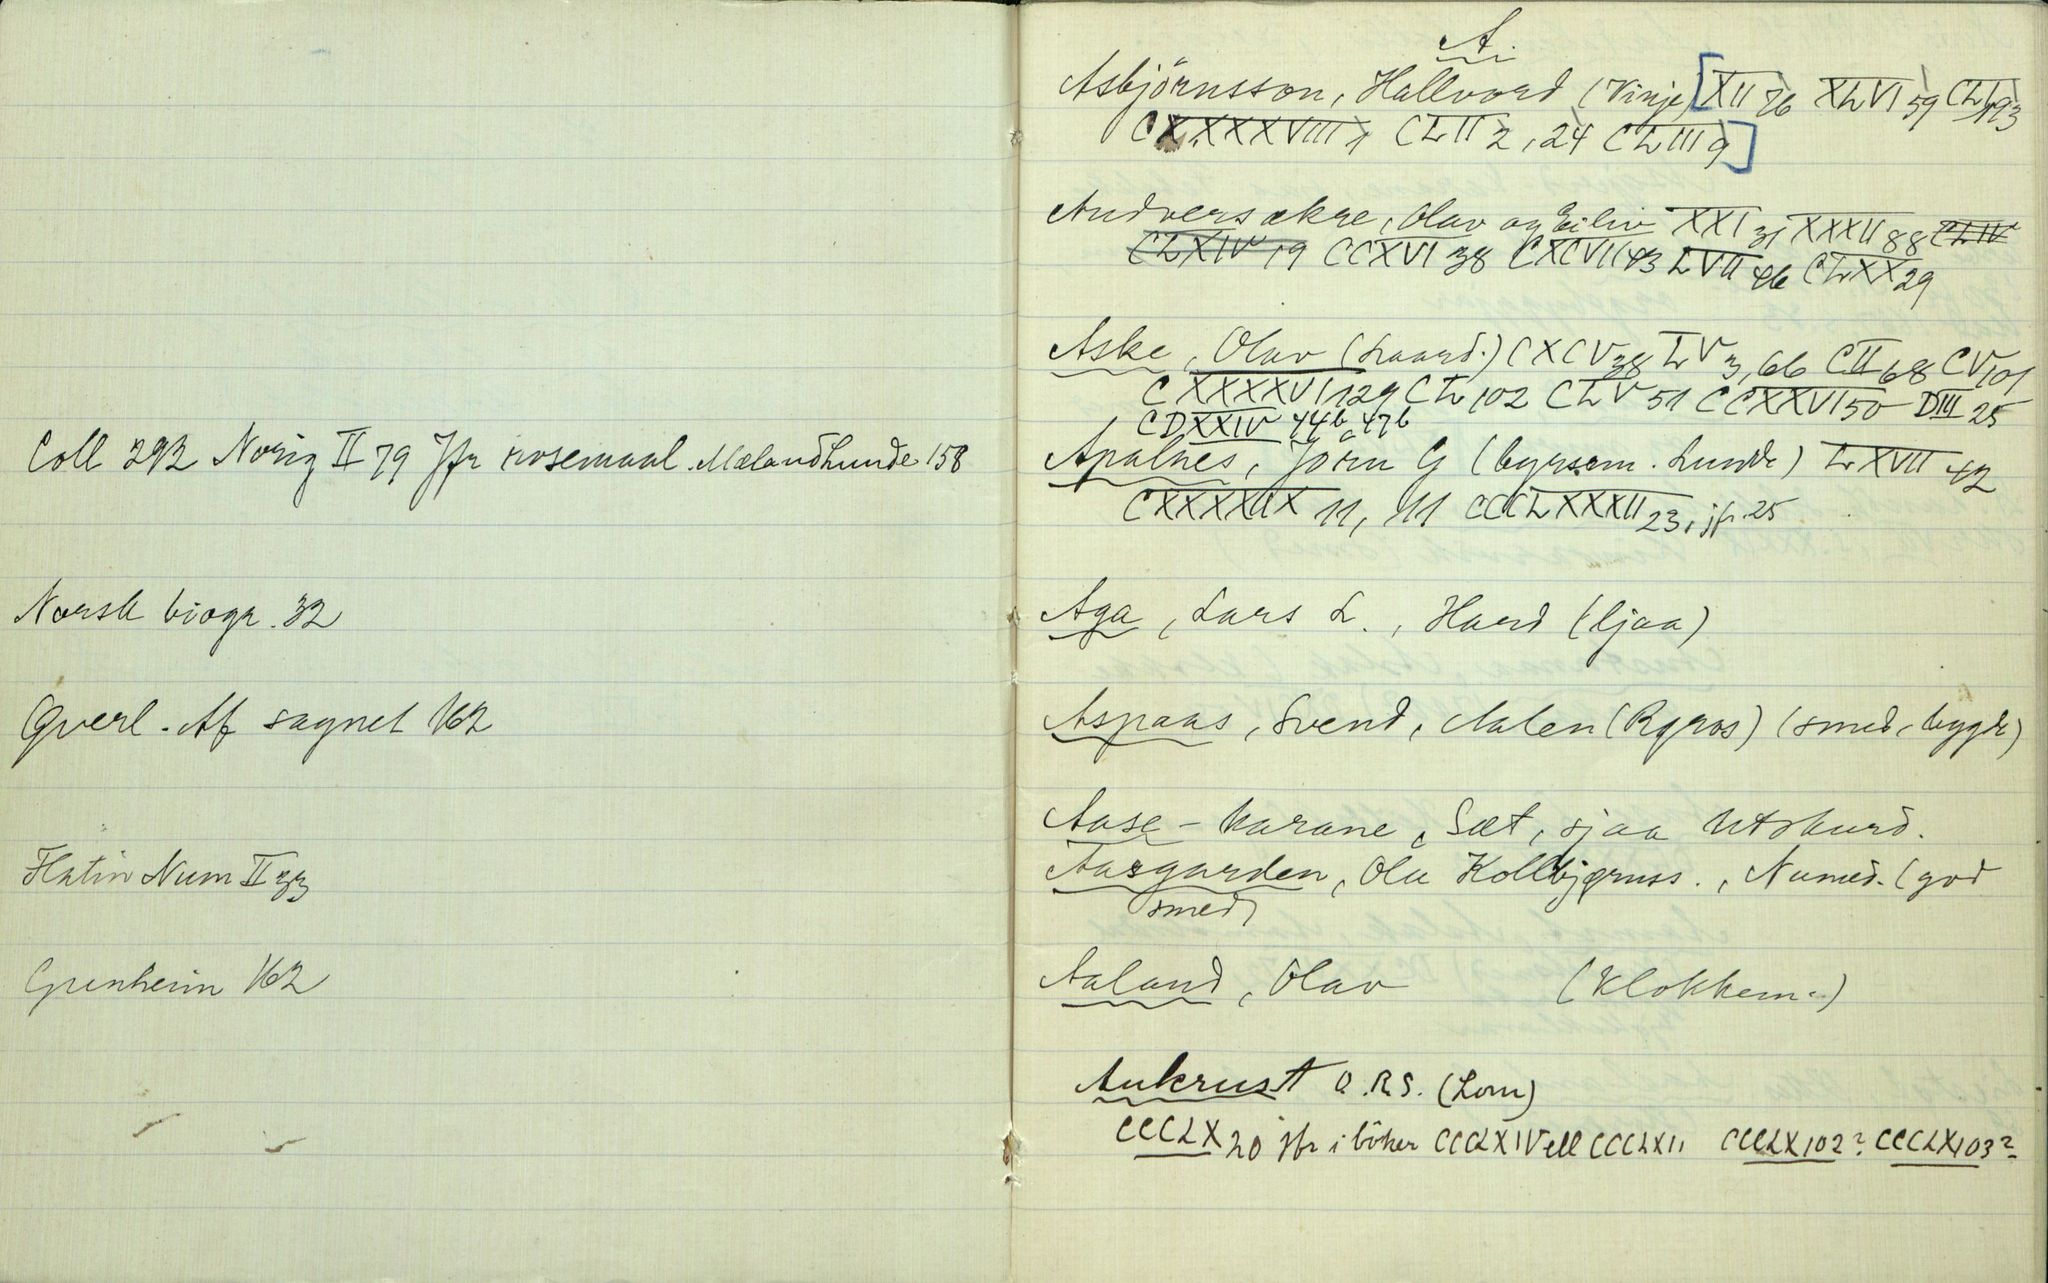 Coll 292 Norig II 79 Jfr rosemaal. Mælandhunde 158
Norsk biogr. 32
Qverl. Af sagnet 162
Flatin Num II 33
Grenheim 162
A.
Asbjörnsson, Hallvord (Vinje) [XII 76 XLVI 59 CLI 193
CXXXXVIII 1 CLII 2, 24 CLIII 9]
Andversakre, Olav og Eiliv XXI 31 XXXII 88 CLIV
CLXIV 19 CCXVI 38 CXCVII 43 LVII 46 CLXX 29
Aske, Olav (Laard.) CXCV 38 LV 3, 66 CII 68 CV 101
CXXXXVI 129 CL 102 CLV 51 CCXXVI 50 DIII 25
CDXXIV 44b, 47b
Apalnes, Jørn G (byrsem. Lunde) LXVII 42
CXXXXIX 11, 411 CCCLXXXII 23, jfr. 25
Aga, Lars L., Hard (ljaa)
Aspaas, Svend, Aalen (Røros) (smed, bygdr)
Aase-karane, Sæt, sjaa Utskurd.
Aasgarden, Ola Kolbjørnss., Numed. (god
smed)
Aaland, Olav (Klokkem.)
Aukrust O.R.S. (Lom)
CCCLX 20 jfr i böker CCCLXIV ell CCCLXII CCCLX 102? CCCLX 103?